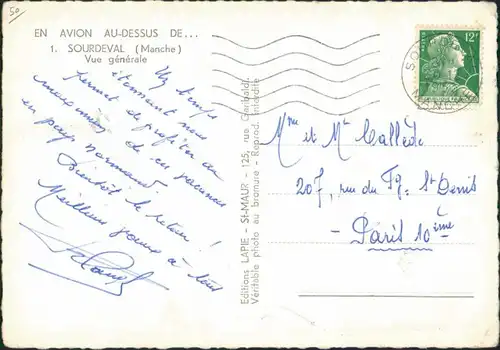 50
EN AVION AU-DESSUS DE...
1. SOURDEVAL (Manche)
Vue générale
Un temps
étonnant nous
permet de profiter au
maximum de ces vacances
en pays normand.
Bientôt le retour !
Meilleurs
à tous
Editions LAPIE - St-MAUR - 125, rue Garibaldi
Véritable photo au bromure - Reprod. interdite
12F
Mme et Mr Callède
207, rue du Fg. St Denis
- Paris 10ième -